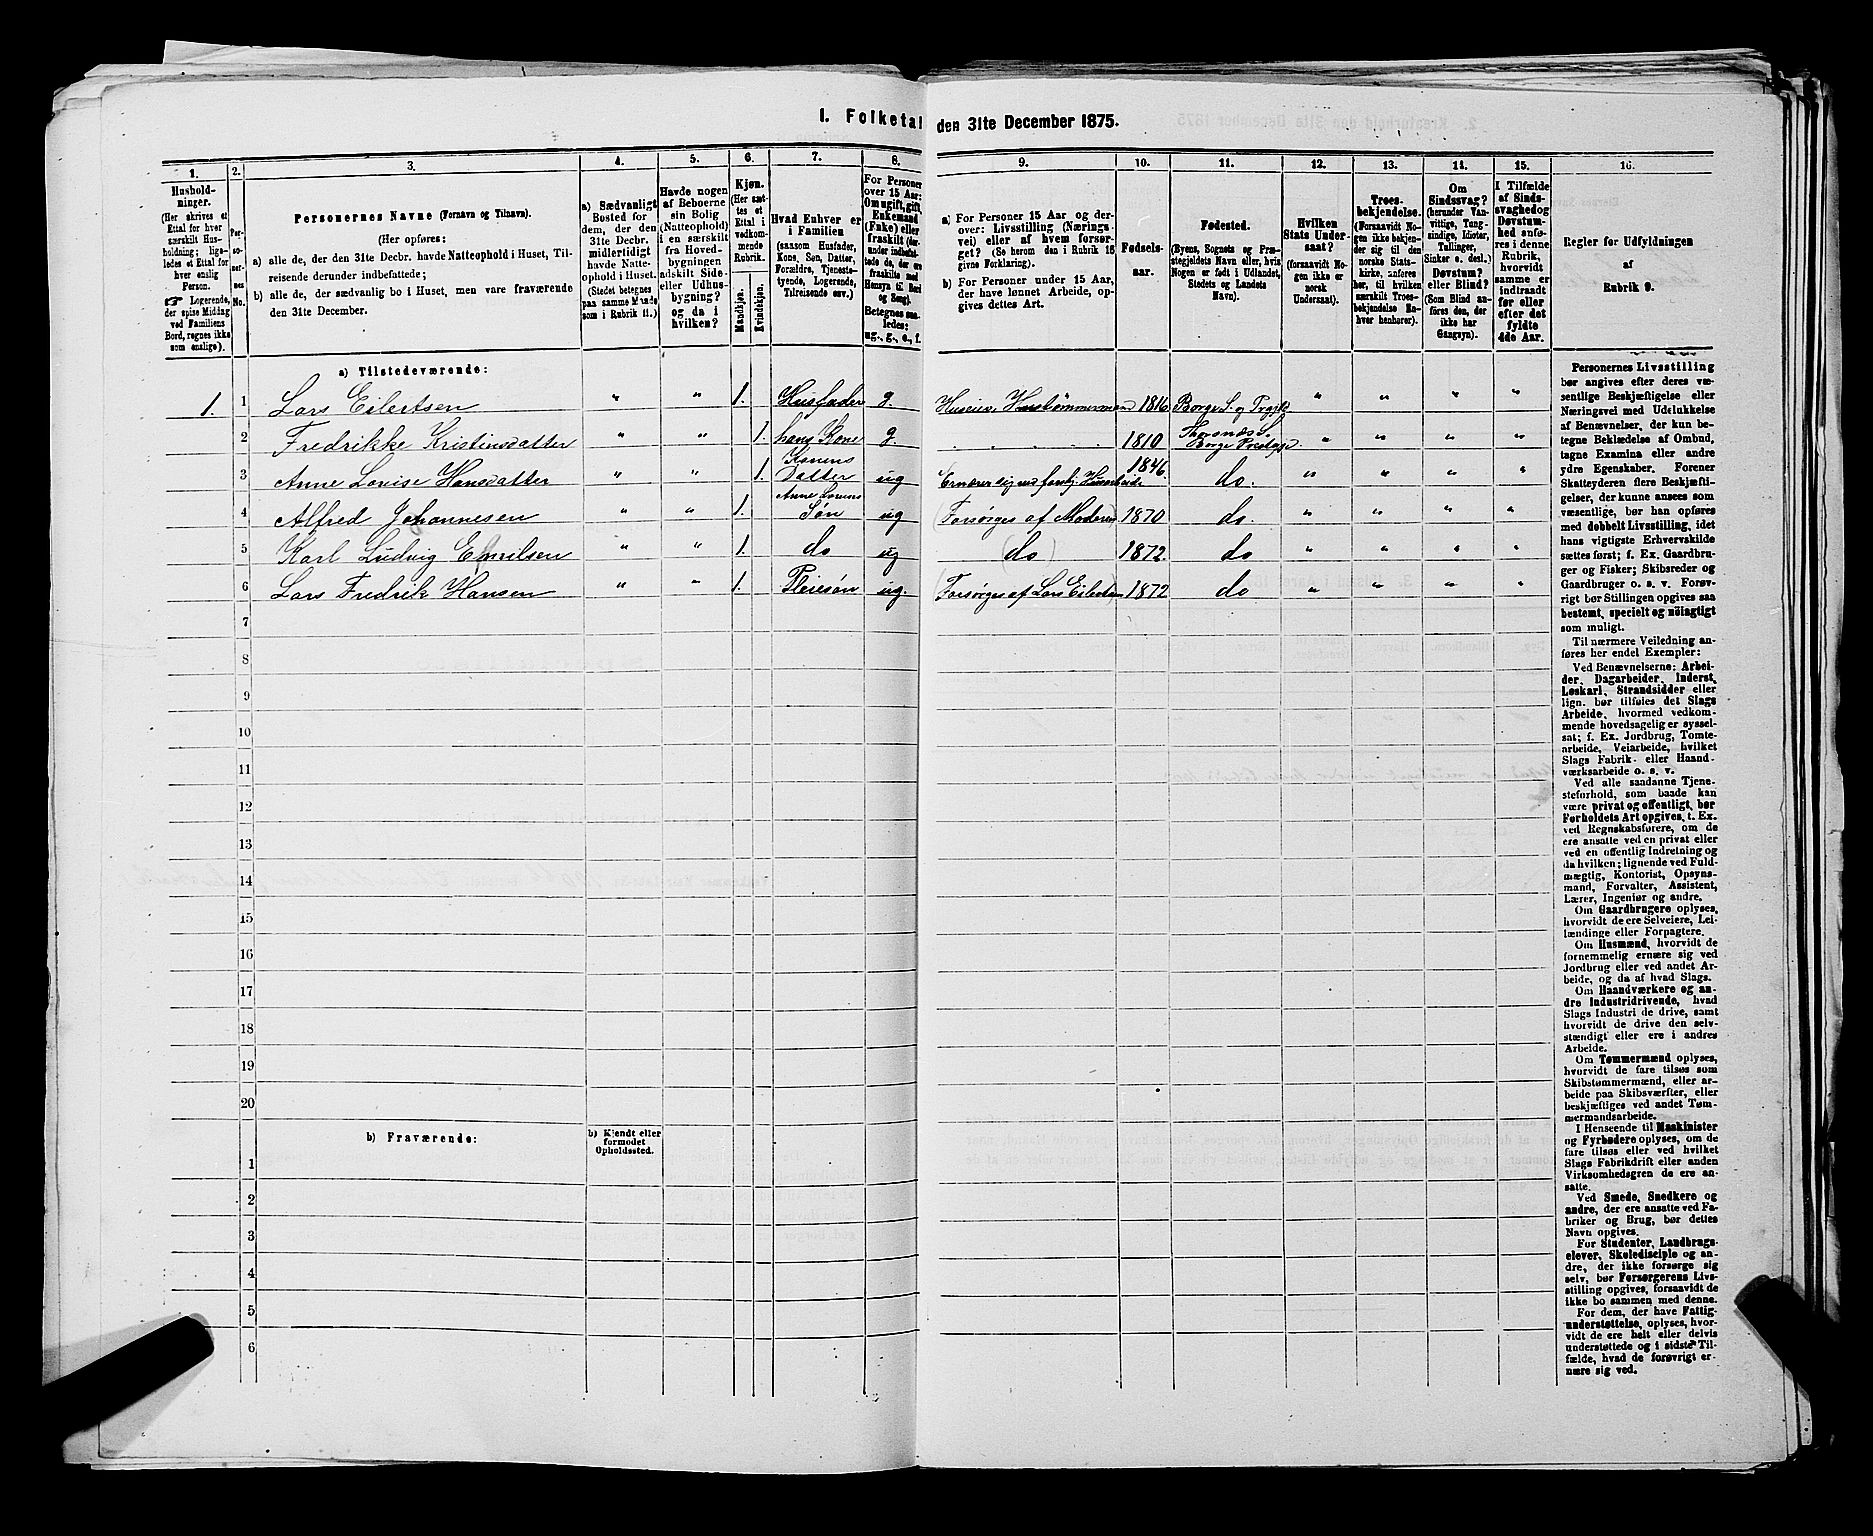 1. Folketal den 31te December 1875.
1.
Hushold-
ninger.
(Her skrives et
Ettal for hver
særskilt Hus-
holdning; lige-
ledes et Ettal for
hver enslig
Person.
☞ Logerende,
der spise Middag
ved Familiens
Bord, regnes ikke
som enslige).
2.
Per-
so-
ner-
nes
No.
3.
Personernes Navne (Fornavn og Tilnavn).
(Her opføres:
a) alle de, der den 31te Decbr. havde Natteophold i Huset, Til-
reisende derunder indbefattede;
b) alle de, der sædvanlig bo i Huset, men vare fraværende
den 31te December.
4.
a) Sædvanligt
Bosted for
dem, der den
31te Decbr.
midlertidigt
havde Natte-
ophold i Huset.
(Stedet betegnes
paa samme Maade
som i Rubrik 11.)
5.
Havde nogen
af Beboerne
sin Bolig
(Natteophold)
i en særskilt
fra Hoved-
bygningen
adskilt Side-
eller Udhus-
bygning?
og da i
hvilken?
6.
Kjøn.
(Her sæt-
tes et
Ettal i
vedkom-
mende
Rubrik.
Mandkjøn.
Kvindekjøn.
7.
Hvad Enhver er
i Familien
(saasom Husfader,
Kone, Søn, Datter,
Forældre, Tjeneste-
tyende, Logerende,
Tilreisende osv.)
8.
For Personer
over 15 Aar:
Om ugift, gift,
Enkemand
(Enke) eller
fraskilt (der-
under indbefat-
tede de, der ere
fraskilte med
Hensyn til Bord
og Seng).
Betegnes saa-
ledes:
ug., g., e., f.
9.
a) For Personer 15 Aar og der-
over: Livsstilling (Nærings-
vei) eller af hvem forsør-
get? (Se herom den i Rubrik 16
givne Forklaring).
b) For Personer under 15 Aar,
der have lønnet Arbeide, op-
gives dettes Art.
10.
Fødsels-
aar.
11.
Fødested.
(Byens, Sognets og Præ-
stegjeldets Navn eller, hvis
Nogen er født i Udlandet,
Stedets og Landets
Navn).
12.
Hvilken
Stats Under-
saat?
(forsaavidt No-
gen ikke er
norsk
Undersaat).
13.
Troes-
bekjendelse.
(Forsaavidt No-
gen ikke bekjen-
der sig til den
norske Stats-
kirke, anføres
her, til hvilken
særskilt Troes-
bekjendelse En-
hver henhører).
14.
Om
Sindssvag?
(herunder Van-
vittige, Tung-
sindige, Idioter,
Tullinger,
Sinker o. desl.)
Døvstum?
eller Blind?
(Som Blind an-
føres den, der
ikke har
Gangsyn).
15.
I Tilfælde
af Sinds-
svaghed og
Døvstum-
hed anfø-
res i denne
Rubrik,
hvorvidt
samme er
indtraadt
før eller
efter det
fyldte
4de Aar.
16.
Regler for Udfyldningen
af
Rubrik 9.
a) Tilstedeværende:
1. 1 Lars Eilertsen " " 1. Husfader g. Huseier Hustømmermand 1816 Borge S. og Prgjld " " " "
2 Fredrikke Kristinsdatter " " 1. hans Kone g. 1810 Thorsnæs S. Borge Prestegj. " " " "
3 Anne Lovise Hansdatter " " 1. Konens Datter ug Ernærer sig ved forskj. Husarbeide. 1846. do. " " " "
4 Alfred Johannesen " " 1. Anne Lovises Søn ug (Forsørges af Moderen 1870 do. " " " "
5 Karl Ludvig Emilsen " " 1. do ug (do) 1872. do " " " "
6 Lars Fredrik Hansen " " 1. Pleiesøn ug. (Forsørges af Lars Eilertsen) 1872 do " " " "
7
8
9
10
11
12
13
14
15
16
17
18
19
20
b) Fraværende:
b) Kjendt eller
formodet
Opholdssted.
1
2
3
4
5
6
Personernes Livsstilling
bør angives efter deres væ-
sentlige Beskjæftigelse eller
Næringsvei med Udelukkelse
af Benævnelser, der kun be-
tegne Beklædelse af Ombud,
tagne Examina eller andre
ydre Egenskaber. Forener
Skatteyderen flere Beskjæfti-
gelser, der kunne ansees som
væsentlige, bør han opføres
med dobbelt Livsstilling, idet
hans vigtigste Erhvervskilde
sættes først; f. Ex. Gaardbru-
ger og Fisker; Skibsreder og
Gaardbruger o. s. v. Forøv-
rigt bør Stillingen opgives saa
bestemt, specielt og nöiagtigt
som muligt.
Til nærmere Veiledning an-
føres her endel Exempler:
Ved Benævnelserne: Arbei-
der, Dagarbeider, Inderst,
Løskarl, Strandsidder eller
lign. bør tilføies det Slags
Arbeide, hvormed vedkom-
mende hovedsagelig er syssel-
sat; f. Ex. Jordbrug, Tomte-
arbeide, Veiarbeide, hvilket
Slags Fabrik- eller Haand-
værksarbeide o. s. v.
Ved alle saadanne Tjene-
steforhold, som baade kan
være privat og offentligt, bør
Forholdets Art opgives, t. Ex.
ved Regnskabsførere, om de
ere ansatte ved en privat eller
ved en offentlig Indretning og
da hvilken; lignende ved Fuld-
mægtig, Kontorist, Opsyns-
mand, Forvalter, Assistent,
Lærer, Ingeniør og andre.
Om Gaardbrugere oplyses,
hvorvidt de ere Selveiere, Lei-
lændinge eller Forpagtere.
Om Husmænd, hvorvidt de
fornemmelig ernære sig ved
Jordbrug eller ved andet Ar-
beide, og da af hvad Slags.
Om Haandværkere og an-
dre Industridrivende, hvad
Slags Industri de drive, samt
hvorvidt de drive den selv-
stændigt eller ere i andres
Arbeide.
Om Tømmermænd oplyses,
hvorvidt de fare tilsøs som
Skibstømmermænd, eller ar-
beide paa Skibsværfter, eller
beskjæftiges ved andet Tøm-
mermandsarbeide.
I Henseende til Maskinister
og Fyrbødere oplyses, om de
fare tilsøs eller ved hvilket
Slags Fabrikdrift eller anden
Virksomhedsgren de ere an-
satte.
Ved Smede, Snedkere og
andre, der ere ansatte ved Fa-
briker og Brug, bør dettes
Navn opgives.
For Studenter, Landbrugs-
elever, Skoledisciple og an-
dre, der ikke forsørge sig
selv, bør Forsørgerens Livs-
stilling opgives, forsaavidt de
ikke bo sammen med denne.
For dem, der have Fattig-
understøttelse, oplyses, hvor-
vidt de ere helt eller delvis
understøttede og i sidste Til-
fælde, hvad de forøvrigt er-
nære sig ved.